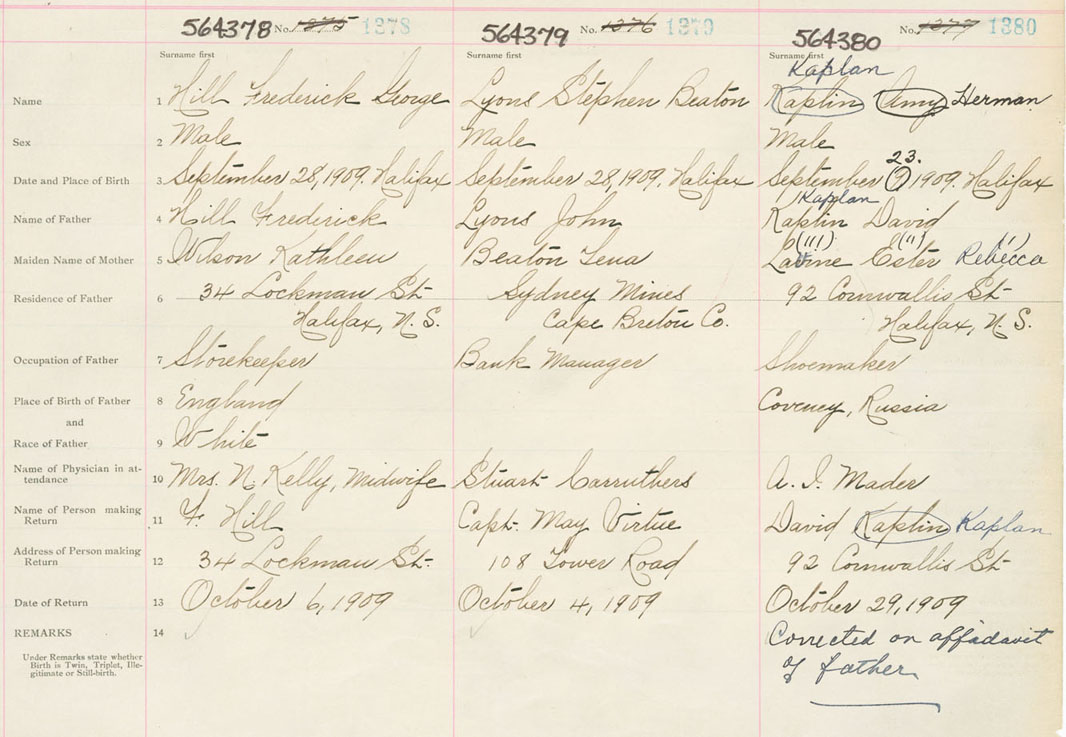 564378 No. 1375 1378 564379 No. 1376 1379 564380 No. 1377 1380
Surname first Surname first Surname first
Kaplan
Name 1 Hill Frederick George Lyons Stephen Beaton Kaplin Amy Herman
Sex 2 Male Male Male
23.
Date and Place of Birth 3 September 28, 1909. Halifax September 28, 1909. Halifax September 1909. Halifax
Kaplan
Name of Father 4 Hill Frederick Lyons John Kaplin David
(111) (11) (11)
Maiden Name of Mother 5 Wilson Kathleen Beaton Lena Ester Rebecca
Residence of Father 6 34 Lockman St. Sydney Mines 92 Cornwallis St.
Halifax, N. S. Cape Breton Co. Halifax, N. S.
Occupation of Father 7 Storekeeper Bank Manager Shoemaker
Place of Birth of Father 8 England Coveney, Russia
and
Race of Father 9 White
Name of Physician in at-
tendance 10 Mrs. N. Kelly, Midwife Stuart Carruthers A. I. Mader
Name of Person making
Return 11 F. Hill Capt. May Virtue David Kaplin Kaplan
Address of Person making
Return 12 34 Lockman St. 108 Tower Road 92 Cornwallis St
Date of Return 13 October 6, 1909 October 4, 1909 October 29, 1909
REMARKS 14 Corrected on affadavit
Under Remarks state whether
Birth is Twin, Triplet, Ille-
gitimate or Still-birth.
of father